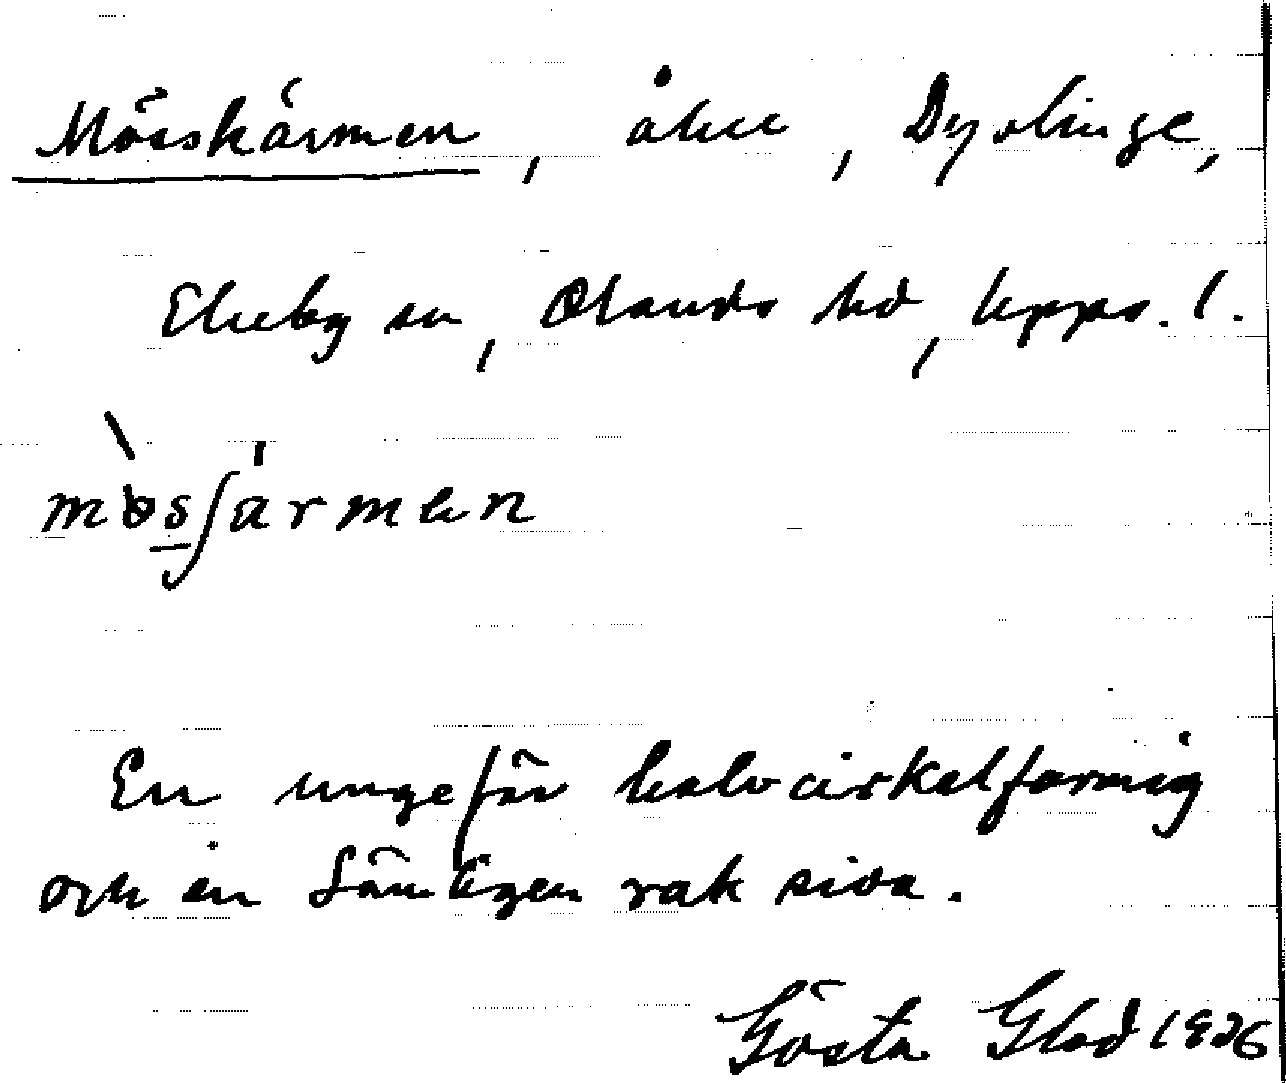 Mösskärmen, åker, Dyvlinge,
Ekeby sn, Olands hd, Upps. l.
mɵ̀sʃärmen
En ungefär halvcirkelformig
och en tämligen rak sida.
Gösta Glad 1926